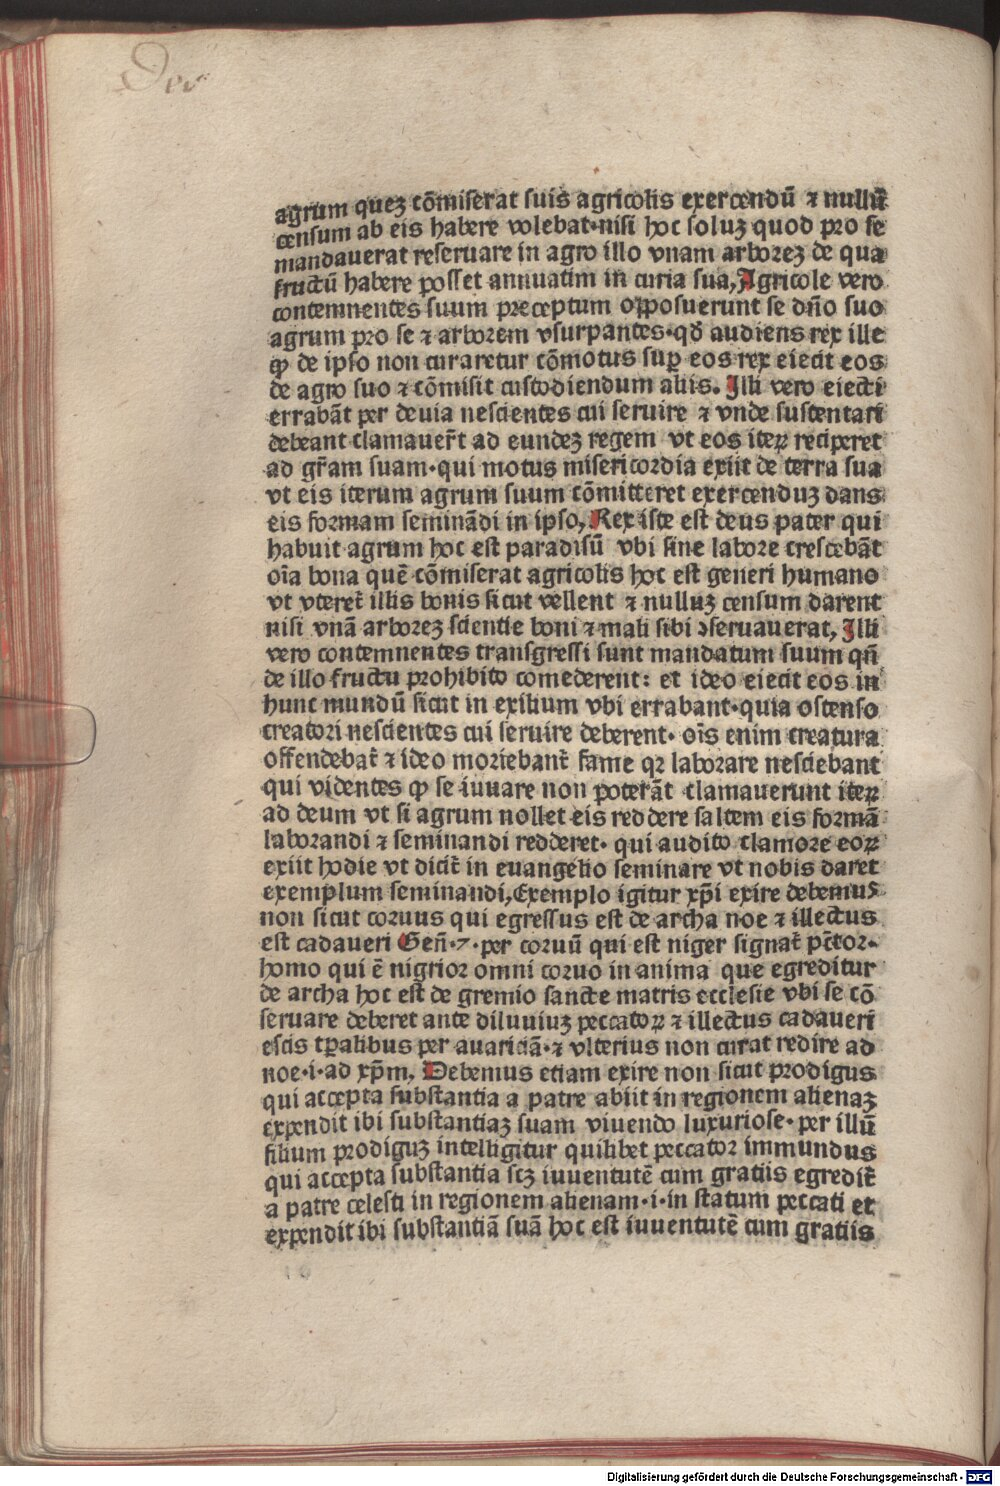 agrum quez cōmiserat suis agricolis exercendū ⁊ nullū
censum ab eis habere volebat·nisi hoc soluz quod pro se
mandauerat reseruare in agro illo vnam arborez de qua
fructū habere posset annuatim in curia sua, Agricole vero
contemnentes suum preceptum opposuerunt se dn̄o suo
agrum pro se ⁊ arborem vsurpantes·qd̄ audiens rex ille
ꝙ de ipso non curaretur cōmotus suꝑ eos rex eiecit eos
de agro suo ⁊ cōmisit custodiendum aliis. Illi vero eiecti
errabāt per deuia nescientes cui seruire ⁊ vnde sustentari
debeant clamauer̄t ad eundez regem vt eos iteꝝ reciperet
ad gr̄am suam·qui motus misericordia exiit de terra sua
vt eis iterum agrum suum cōmitteret exercenduz dans
eis formam seminādi in ipso, Rex iste est deus pater qui
habuit agrum hoc est paradisū vbi sine labore crescebāt
oīa bona quē cōmiserat agricolis hoc est generi humano
vt vteret̄ illis bonis sicut vellent ⁊ nulluz censum darent
nisi vnā arborez scientie boni ⁊ mali sibi ↄseruauerat, Illi
vero contemnentes transgressi sunt mandatum suum qn̄
de illo fructu prohibito comederent: et ideo eiecit eos in
hunc mundū sicut in exilium vbi errabant·quia ostenso
creatori nescientes cui seruire deberent· oīs enim creatura
offendebat̄ ⁊ ideo moriebant̄ fame qꝛ laborare nesciebant
qui videntes ꝙ se iuuare non poterāt clamauerunt iteꝝ
ad deum vt si agrum nollet eis reddere saltem eis formā
laborandi ⁊ seminandi redderet· qui audito clamore eoꝝ
exiit hodie vt dicit̄ in euangelio seminare vt nobis daret
exemplum seminandi, Exemplo igitur xp̄i exire debemus
non sicut coruus qui egressus est de archa noe ⁊ illectus
est cadaueri Gen̄·7·per coruū qui est niger signat̄ pc̄tor·
homo qui ē nigrior omni coruo in anima que egreditur
de archa hoc est de gremio sancte matris ecclesie vbi se cō
seruare deberet ante diluuiuz peccatoꝝ ⁊ illectus cadaueri
escis tꝑalibus per auariciā·⁊ vlterius non curat redire ad
noe·i·ad xp̄m, Debemus etiam exire non sicut prodigus
qui accepta substantia a patre abiit in regionem alienaz
expendit ibi substantiaz suam viuendo luxuriose·per illū
filium prodiguz intelligitur quilibet peccator immundus
qui accepta substantia scꝫ iuuentutē cum gratiis egredit̄
a patre celesti in regionem alienam·i·in statum peccati et
expendit ibi substantiā suā hoc est iuuentutē cum gratiis
Digitalisierung gefördert durch die Deutsche Forschungsgemeinschaft · DFG